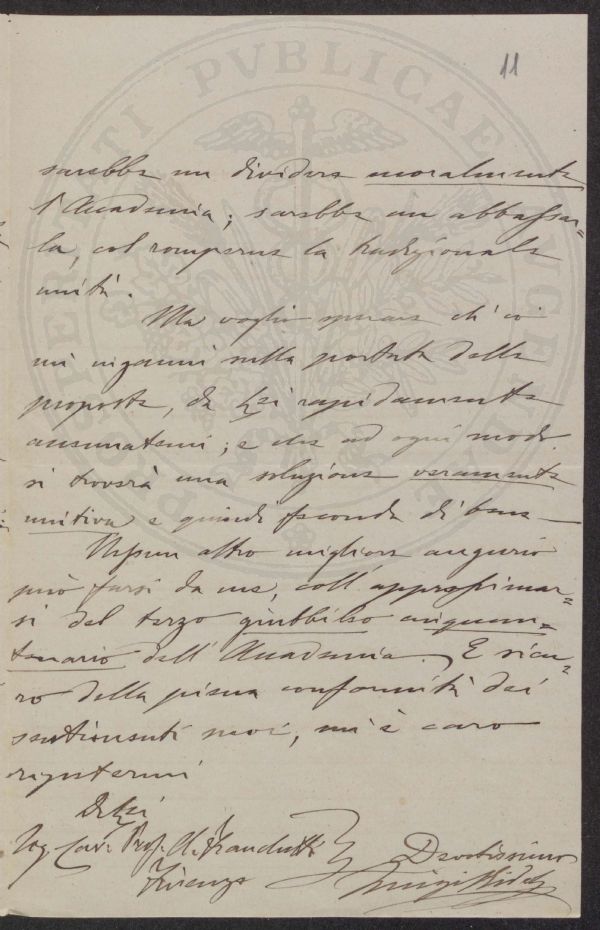 11
PROSPERITATI PVBLICAE AVGENDAE
sarebbe un dividere moralmente
l'Accademia; sarebbe un abbassar=
la, col romperne la tradizionale
unità.
Ma voglio sperare ch'io
mi inganni nella portata delle
proposte, da Lei rapidamente
accennatemi; e che ad ogni modo
si troverà una soluzione veramente
unitiva e quindi feconda di bene —
Nessun altro migliore augurio
può farsi da me, coll'approssimar=
si del terzo giubbileo cinquan=
tenario dell'Accademia. E sicu=
ro della piena conformità dei
sentimenti suoi, mi è caro
ripetermi
Di Lei
Devotissimo
Luigi
Cav. Prof. A.
Firenze